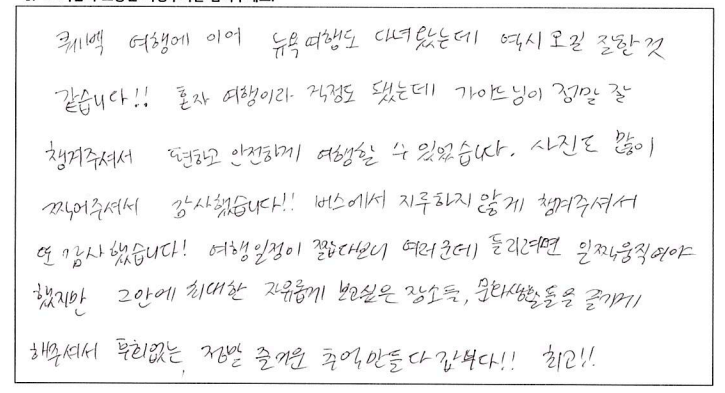 퀘백 여행에 이어 뉴욕여행도 다녀왔는데 역시 오길 잘한 것
같습니다!! 혼자 여행이라 걱정도 됐는데 가이드님이 정말 잘
챙겨주셔서 편하고 안전하게 여행할 수 있었습니다. 사진도 많이
찍어주셔서 감사했습니다!! 버스에서 지루하지 않게 챙겨주셔서
또 감사했습니다! 여행일정이 짧다보니 여러군데 들리려면 일찍움직여야
했지만 그안에 최대한 자유롭게 보고싶은 장소들, 문화생활들을 즐기게
해주셔서 후회없는, 정말 즐거운 추억만들다 갑니다!! 최고!!